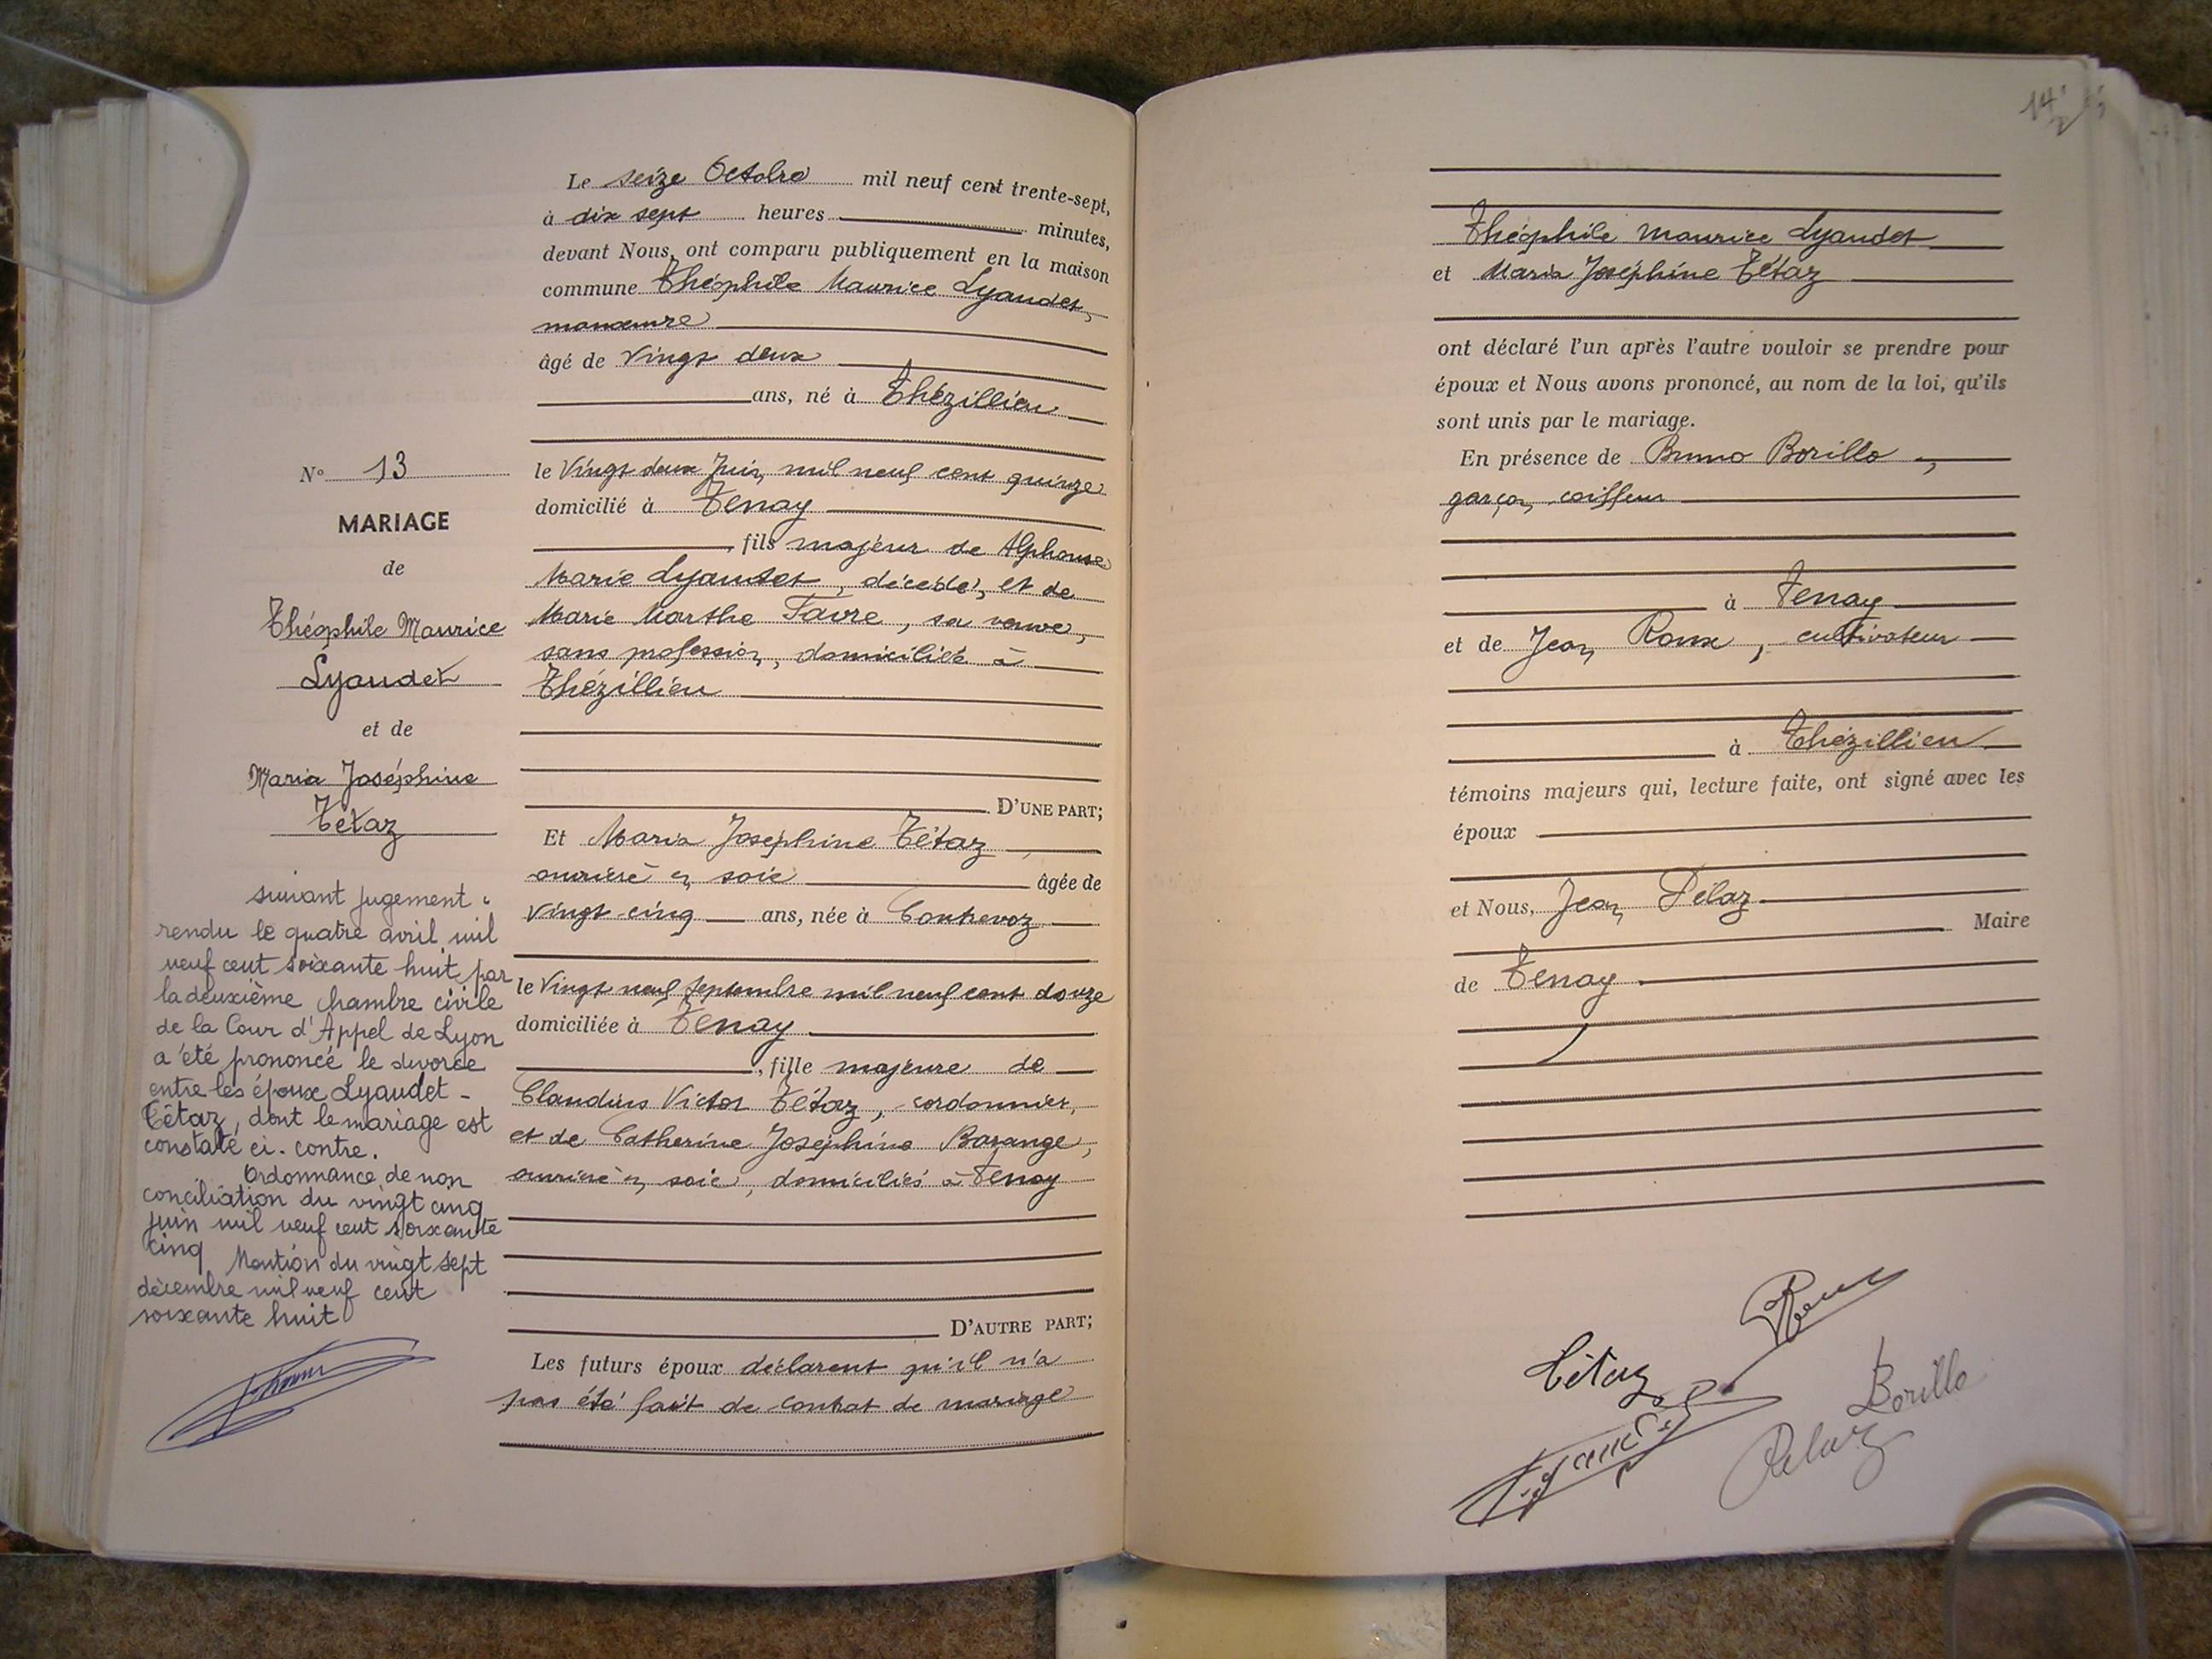 N° 13
MARIAGE
de
Théophile Maurice
Lyaudet
et de
Maria Joséphine
Tétaz
suivant jugement
rendu le quatre avril mil
neuf cent soixante huit par
la deuxième chambre civile
de la Cour d'Appel de Lyon
a été prononcé le divorce
entre les époux Lyaudet -
Tétaz, dont le mariage est
constaté ci-contre.
Ordonnance de non
conciliation du vingt cinq
juin mil neuf cent soixante
cinq Mention du vingt sept
décembre mil neuf cent
soixante huit
Le seize Octobre mil neuf cent trente-sept,
à dix sept heures minutes,
devant Nous, ont comparu publiquement en la maison
commune Théophile Maurice Lyaudet,
manœuvre
âgé de vingt deux
ans, né à Thézillieu
le vingt deux Juin mil neuf cent quinze
domicilié à Tenay
, fils majeur de Alphonse
Marie Lyaudet, décédé, et de
Marie Marthe Favre, sa veuve,
sans profession, domiciliée à
Thézillieu
D'UNE PART;
Et Maria Joséphine Tétaz
ouvrière en soie âgée de
vingt cinq ans, née à Conthevoz
le vingt neuf septembre mil neuf cent douze
domiciliée à Tenay
, fille majeure de
Claudius Victor Tétaz, cordonnier,
et de Catherine Joséphine Barange,
ouvrière en soie, domiciliés à Tenay
D'AUTRE PART;
Les futurs époux déclarent qu'il n'a
pas été fait de contrat de mariage
14
Théophile Maurice Lyaudet
et Maria Joséphine Tétaz
ont déclaré l'un après l'autre vouloir se prendre pour
époux et Nous avons prononcé, au nom de la loi, qu'ils
sont unis par le mariage.
En présence de Bruno Borillo,
garçon coiffeur
à Tenay
et de Jean Roux, cultivateur
à Thézillieu
témoins majeurs qui, lecture faite, ont signé avec les
époux
et Nous, Jean Pélaz
Maire
de Tenay
Roux
Tétaz
Borillo
Lyaudet
Pelaz